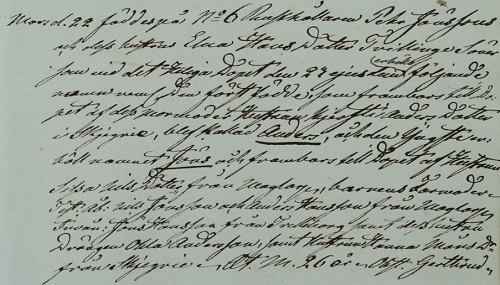 Mars d. 22 föddes på No 6 Rusthållaren Pehr Jönssons
och dess hustrus Elna Hans Dotter Tvillinge Söner
som vid det Heliga Dopet den 23 ejusdem erhöllo följande
namn nemt. Den först födde, som frambars till Do-
pet af dess mormoder Hustrun Kjerstti Anders Dotter
i Skjegrie, blef kallad Anders, och den Yngste er-
höll namnet Jöns och frambars till Dopet af Hustrun
Sissa Nils Dotter från Maglarp, barnens Farmoder
Test. Åb. Nils Jönsson och Anders Hansson från Maglarp,
Jöns Hansson från Trelleborg samt dess hustru
Drängen Ohla Andersson, samt Hustrun Hanna Mårs Dr
från Skjegrie. Ålt. M. 26 år Obst. Gertrud